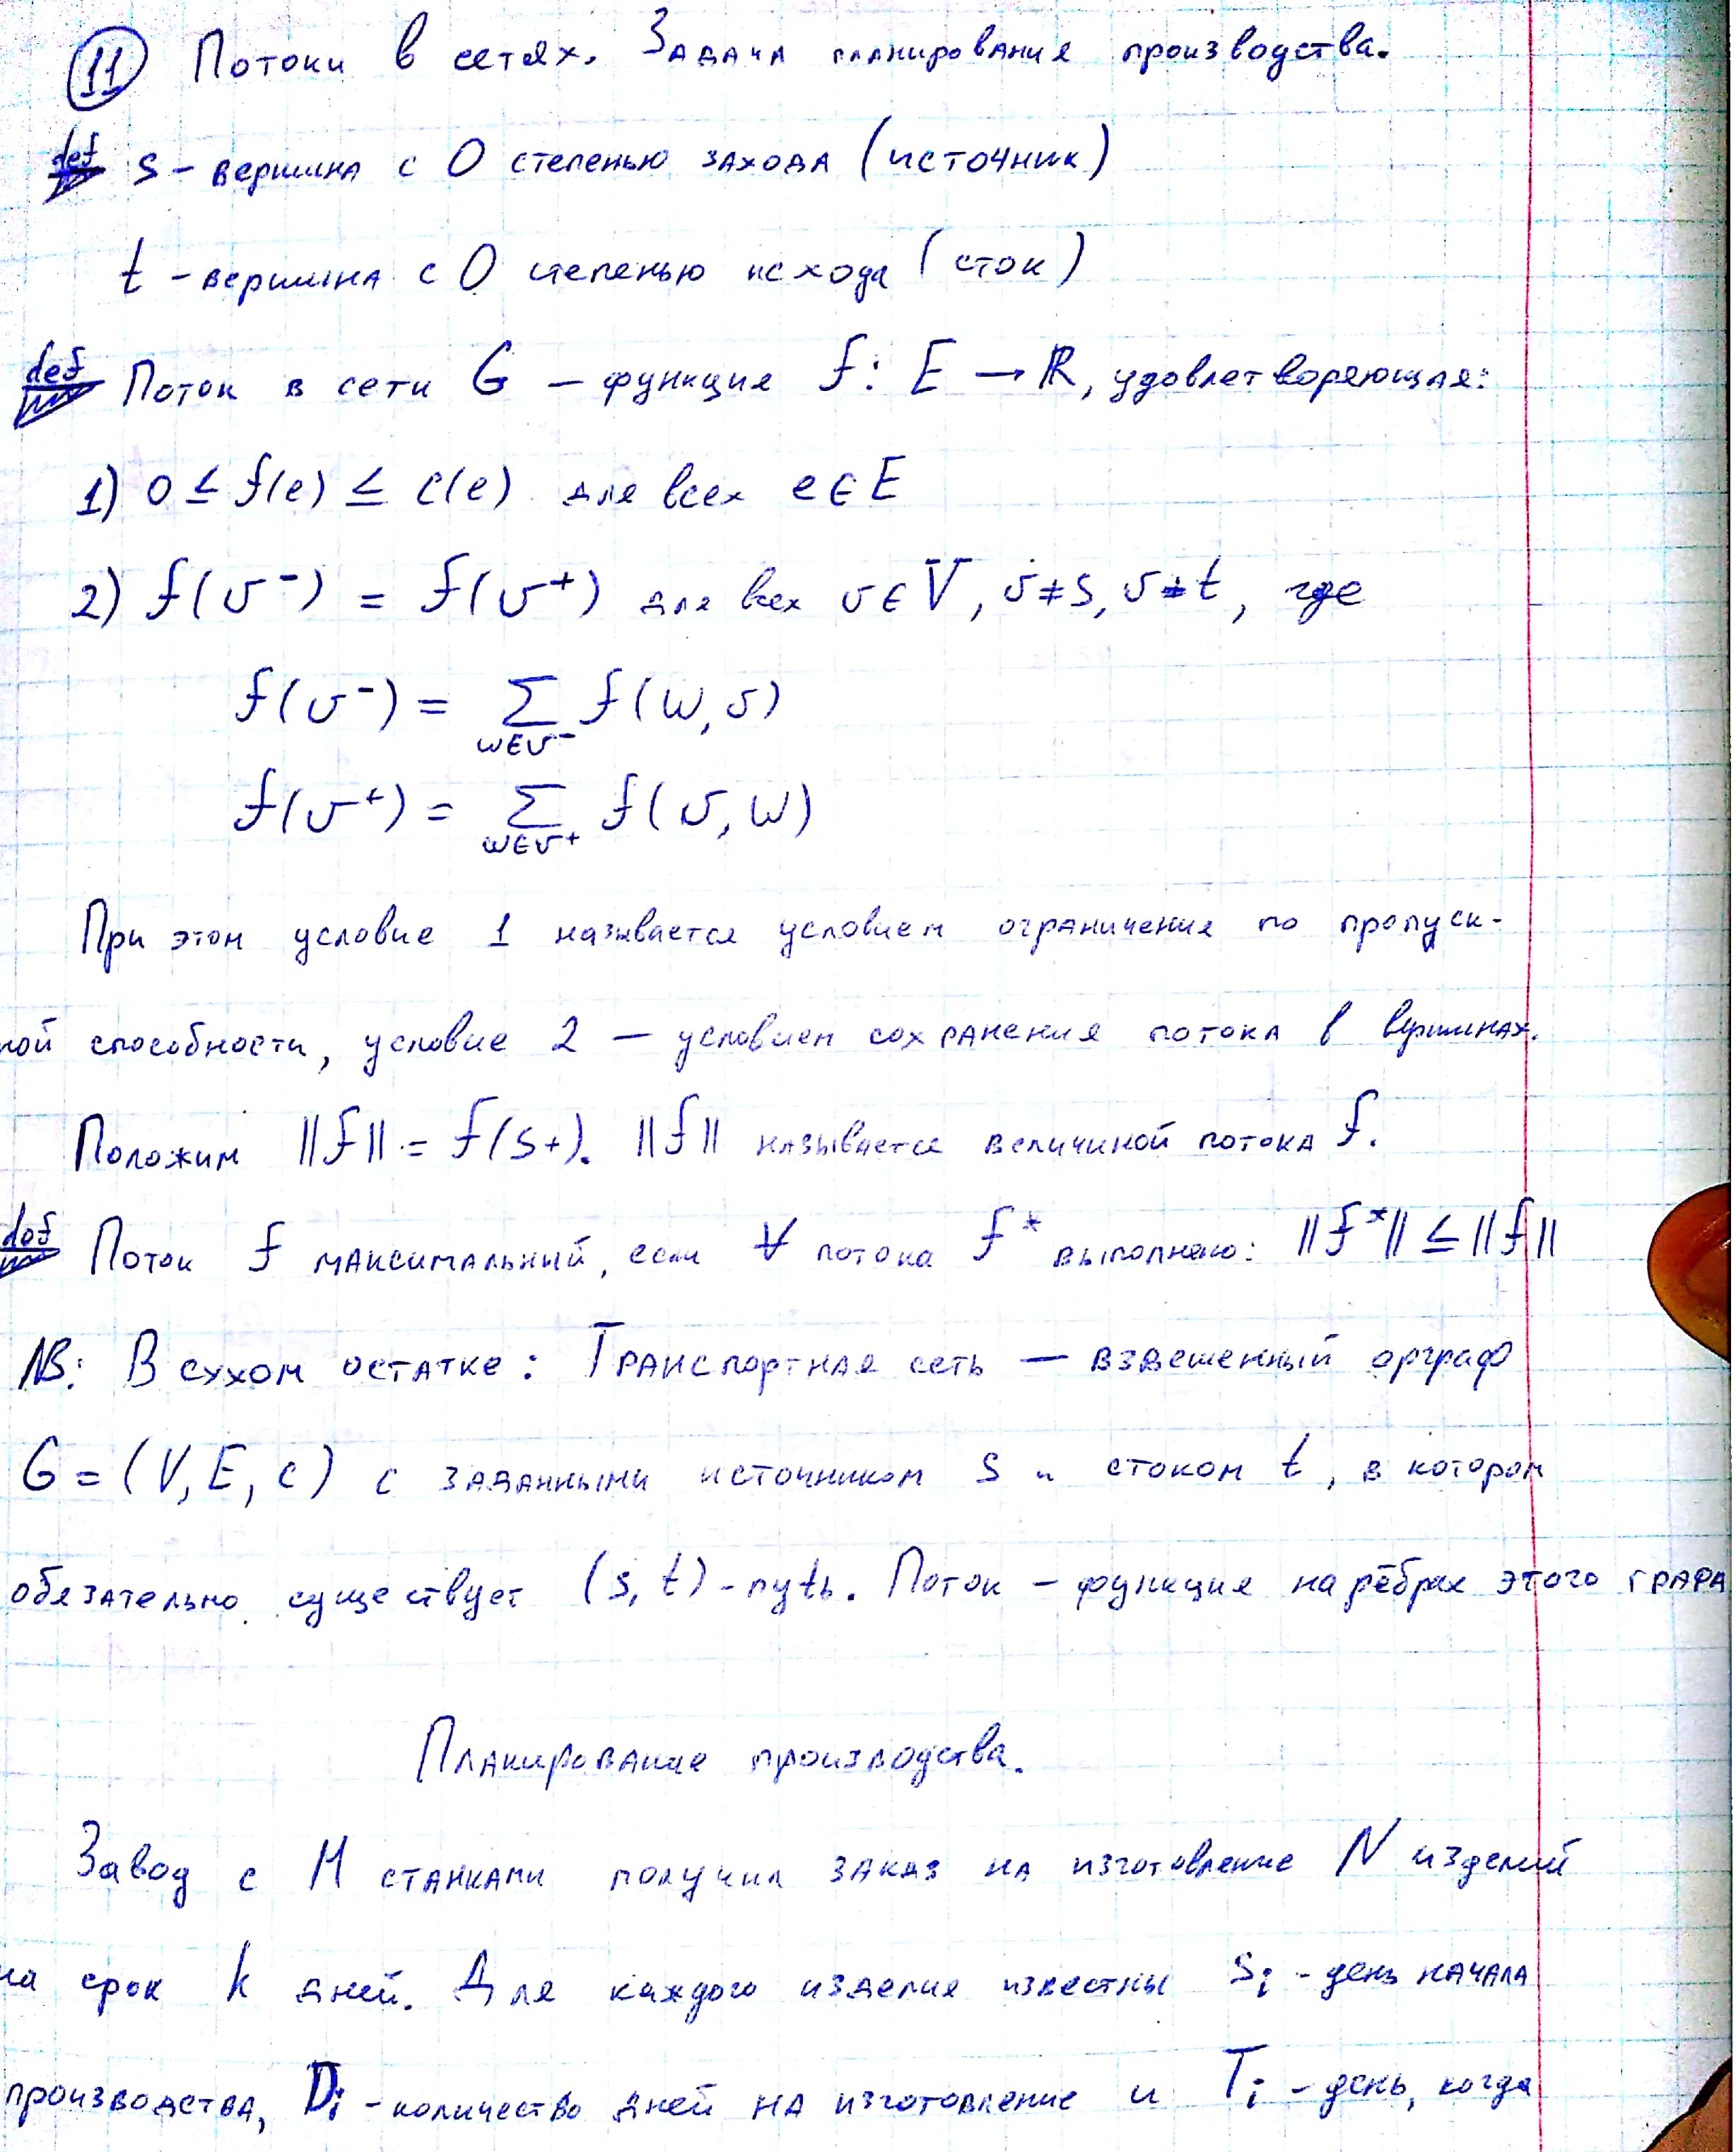 11 Потоки в сетях. Задача планирования производства.
def s - вершина с 0 степенью захода (источник)
t - вершина с 0 степенью исхода (сток)
def Поток в сети G — функция f: E → ℝ, удовлетворяющая:
1) 0 ≤ f(e) ≤ c(e) для всех e ∈ E
2) f(v⁻) = f(v⁺) для всех v ∈ V, v ≠ s, v ≠ t, где
f(v⁻) = ∑ f(w, v)
w∈v⁻
f(v⁺) = ∑ f(v, w)
w∈v⁺
При этом условие 1 называется условием ограничения по пропуск-
ной способности, условие 2 — условием сохранения потока в вершинах.
Положим ||f|| = f(s+). ||f|| называется величиной потока f.
def Поток f максимальный, если ∀ потока f* выполнено: ||f*|| ≤ ||f||
NB: В сухом остатке: Транспортная сеть — взвешенный орграф
G = (V, E, c) с заданными источником s и стоком t, в котором
обязательно существует (s, t) - путь. Поток - функция на рёбрах этого графа
Планирование производства.
Завод с M станками получил заказ на изготовление N изделий
на срок k дней. Для каждого изделия известны Si - день начала
производства, Di - количество дней на изготовление и Ti - день, когда